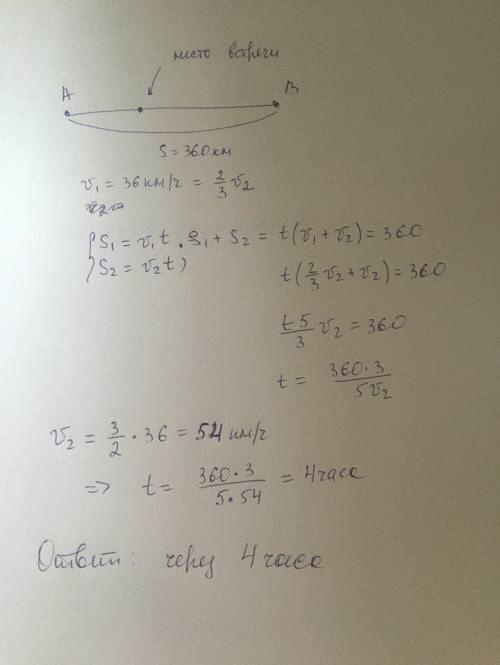 место встречи
A B
S = 360 км
v₁ = 36 км/ч = 2/3 v₂
{ S₁ = v₁t , S₁ + S₂ = t(v₁ + v₂) = 360
S₂ = v₂t } t(2/3 v₂ + v₂) = 360
t5/3 v₂ = 360
t = 360·3/5v₂
v₂ = 3/2 · 36 = 54 км/ч
=> t = 360·3/5·54 = 4 часа
Ответ: через 4 часа